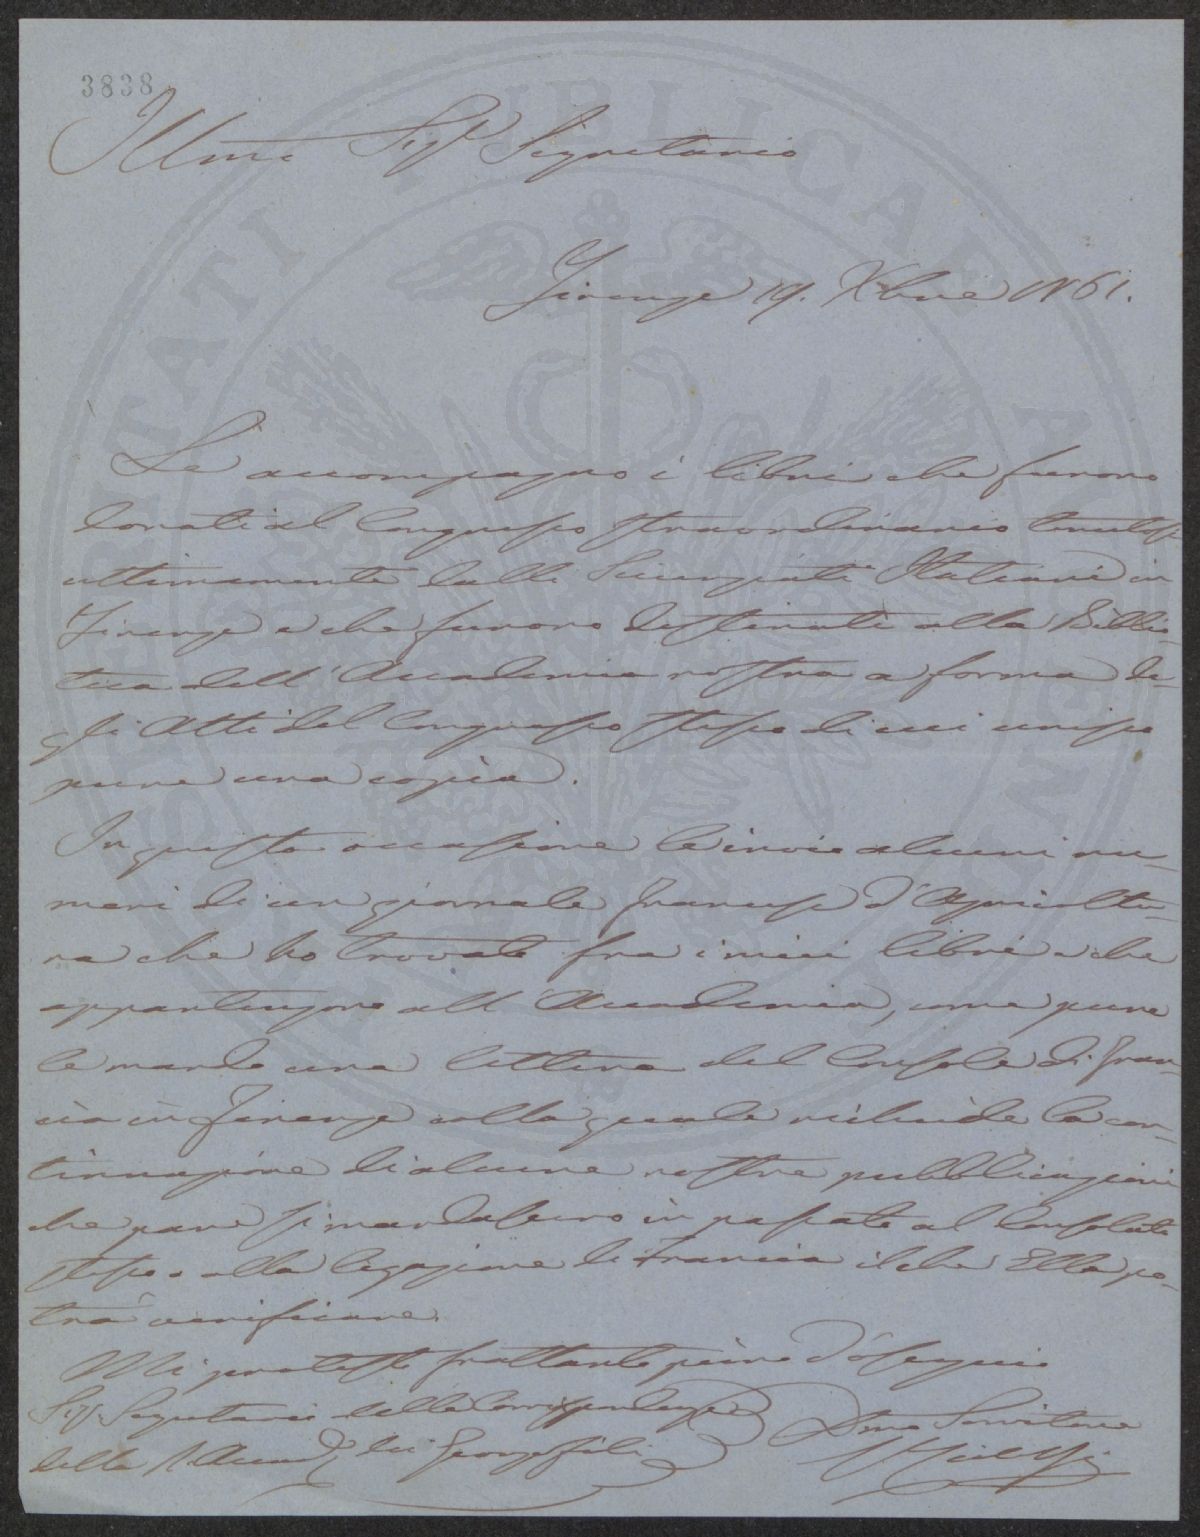 3838
Illmo Sigr Segretario
Firenze 19. Xbre 1861.
Le accompagno i libri che furono
donati al Congresso straordinario tenutosi
ultimamente dalli Scienziati Italiani in
Firenze e che furono destinati alla Biblio-
teca dell' Accademia nostra a forma de-
gli Atti del Congresso stesso di cui unisco
pure una copia.
In questa occasione le invio alcuni nu-
meri di un giornale francese d'Agricoltu-
ra che ho trovato fra i miei libri e che
appartengono all' Accademia, come pure
le mando una lettera del Console di Fran-
cia in Firenze colla quale richiede la con-
tinuazione di alcune nostre pubblicazioni
che pare si mandassero in passato al Consolato
stesso o alla Legazione di Francia il che Ella po-
trà verificare.
Mi protesto frattanto pieno d'ossequio
Sigr Segretario delle Corrispondenze
della R. Accad. dei Georgofili
Dmo Servitore
SERITATI PUBLICAE